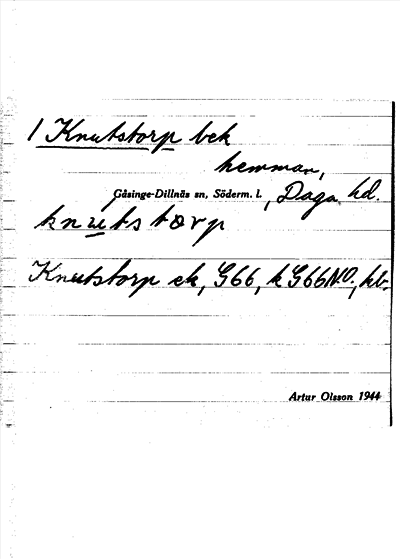 1 Knutstorp bek
hemman,
Gåsinge-Dillnäs sn, Söderm. l., Daga hd.
knutstorp
Knutstorp ek, G66, k G66 N.O., hb.
Artur Olsson 1944